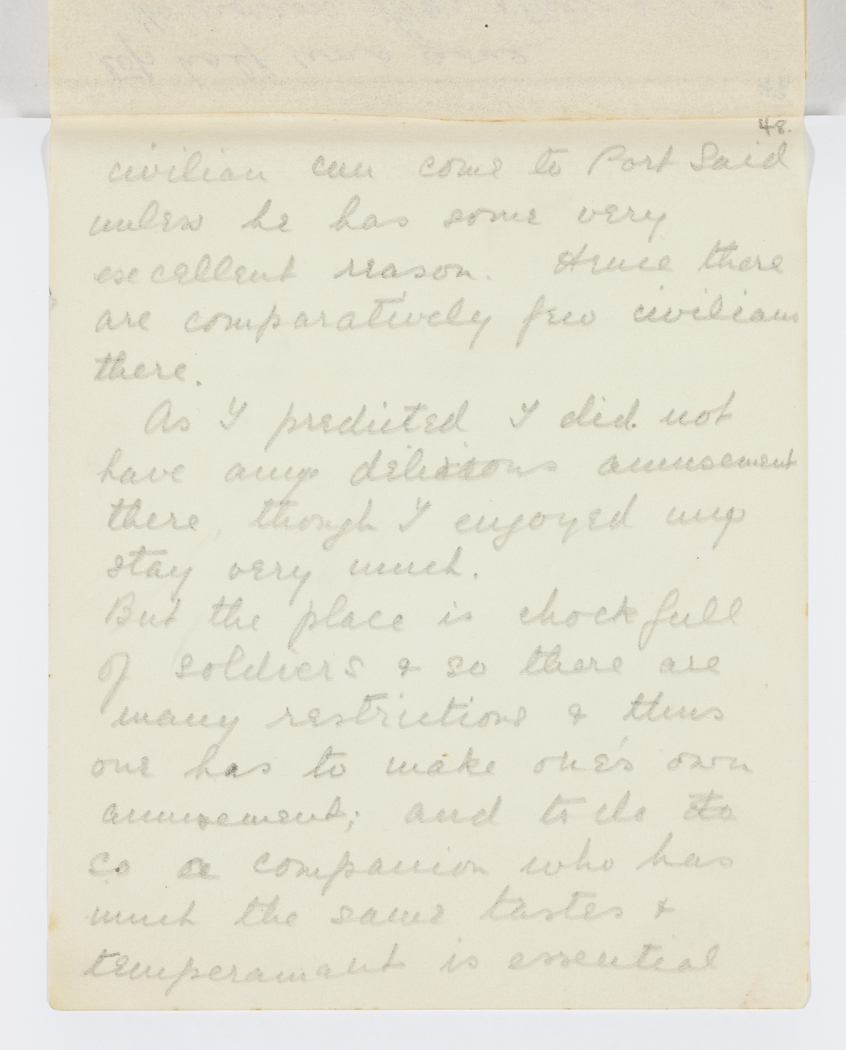 48.
civilian can come to Port Said
unless he has some very
excellent reason. Hence there
are comparatively few civilians
there.
As I predicted I did not
have any delirious amusement
there, though I enjoyed my
stay very much.
But the place is chock full
of soldiers & so there are
many restrictions & thus
one has to make one's own
amusement; and to do to
so a companion who has
much the same tastes &
temperamant is essential